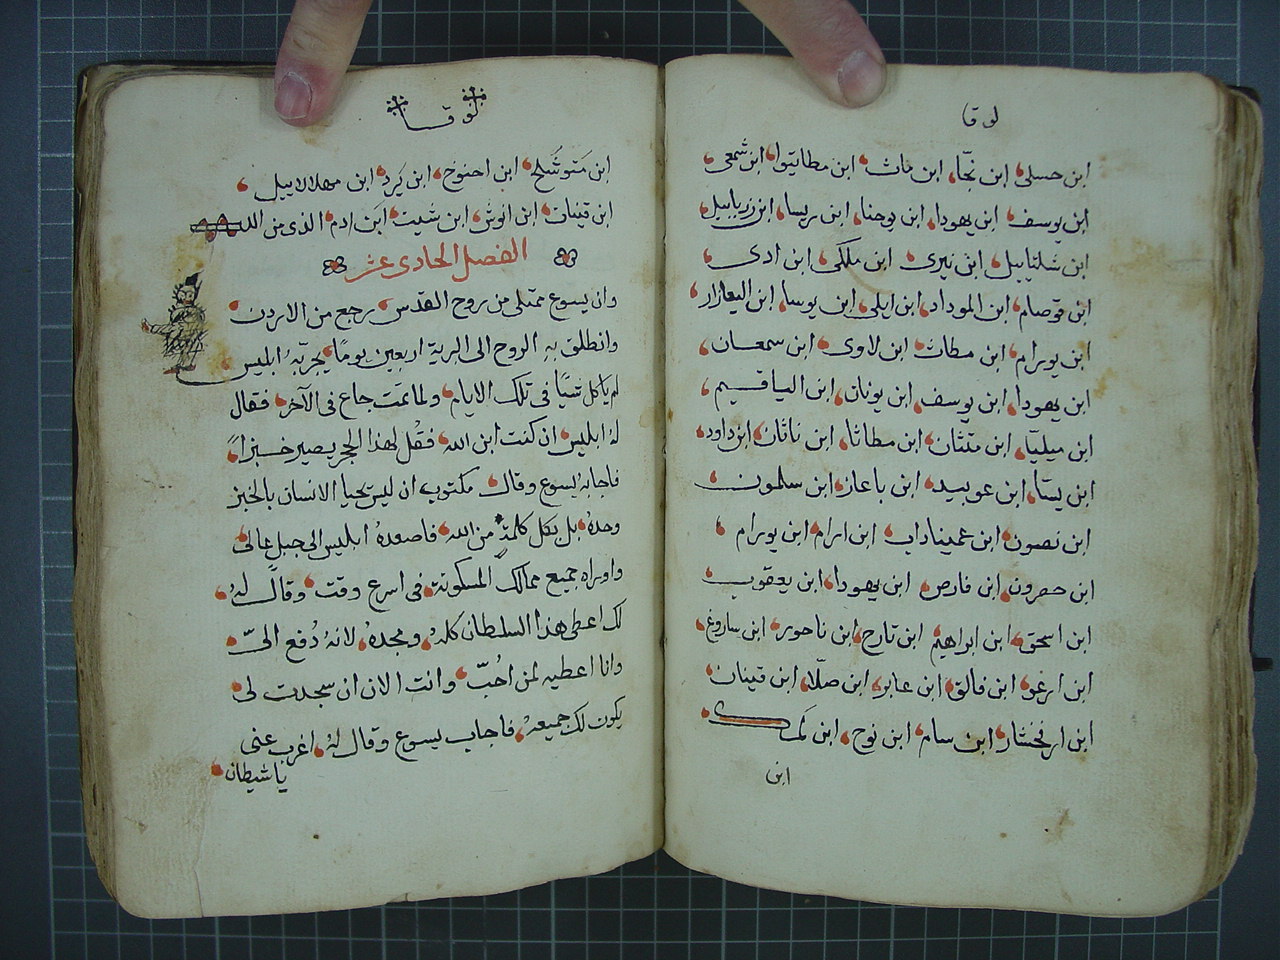 لوقا
ابن حسلى ابن نجّا ابن ماث ابن مطاتيوا ابن شمعى
ابن يوسف ابن يهودا ابن يوحنا ابن ريسا ابن زربابيل
ابن شلتاييل ابن نيرى ابن ملكى ابن ادى
ابن قوصام ابن الموداد ابن ايلى ابن يوسا ابن اليعازار
ابن يورام ابن مطاث ابن لاوى ابن سمعان
ابن يهودا ابن يوسف ابن يونان ابن الياقيم
ابن ميليّا ابن متثان ابن مطاثا ابن ناثان ابن داود
ابن يسّا ابن عوبيد ابن باعاز ابن سلمون
ابن نصون ابن عميناداب ابن ارام ابن يورام
ابن حصرون ابن فارص ابن يهودا ابن يعقوب
ابن اسحق ابن ابراهيم ابن تارح ابن ناحور ابن ساروغ
ابن ارغو ابن فالق ابن عابر ابن صلّا ابن قينان
ابن ارفخشاد ابن سام ابن نوح ابن لمك
ابن
لوقا
ابن متوشلح ابن احنوخ ابن يرد ابن مهلالاييل
ابن قينان ابن انوش ابن شيت ابن ادم الذى من الله
الفصل الحادى عشر
وان يسوع ممتلى من روح القدس رجع من الاردن
وانطلق به الروح الى البرية اربعين يومًا يجربهُ ابليس
لم ياكل شيًا فى تلك الايام ولما تمت جاع فى الآخر فقال
لهُ ابليس ان كنت ابن الله فقُل لهذا الحجر يصير خبزًا
فاجابهُ يسوع وقال مكتوب ان ليس يحيا الانسان بالخبز
وحدهُ بل بكل كلمة من الله فاصعدهُ ابليس الى جبل عالى
واوراه جميع ممالك المسكونة فى اسرع وقت وقال لهُ
لك اعطى هذا السلطان كلهُ ومجدهُ لانهُ دُفع الىّ
وانا اعطيه لمن اُحبّ وانت الان ان سجدت لى
يكون لك جميعهُ فاجاب يسوع وقال لهُ اغرب عنى
يا شيطان